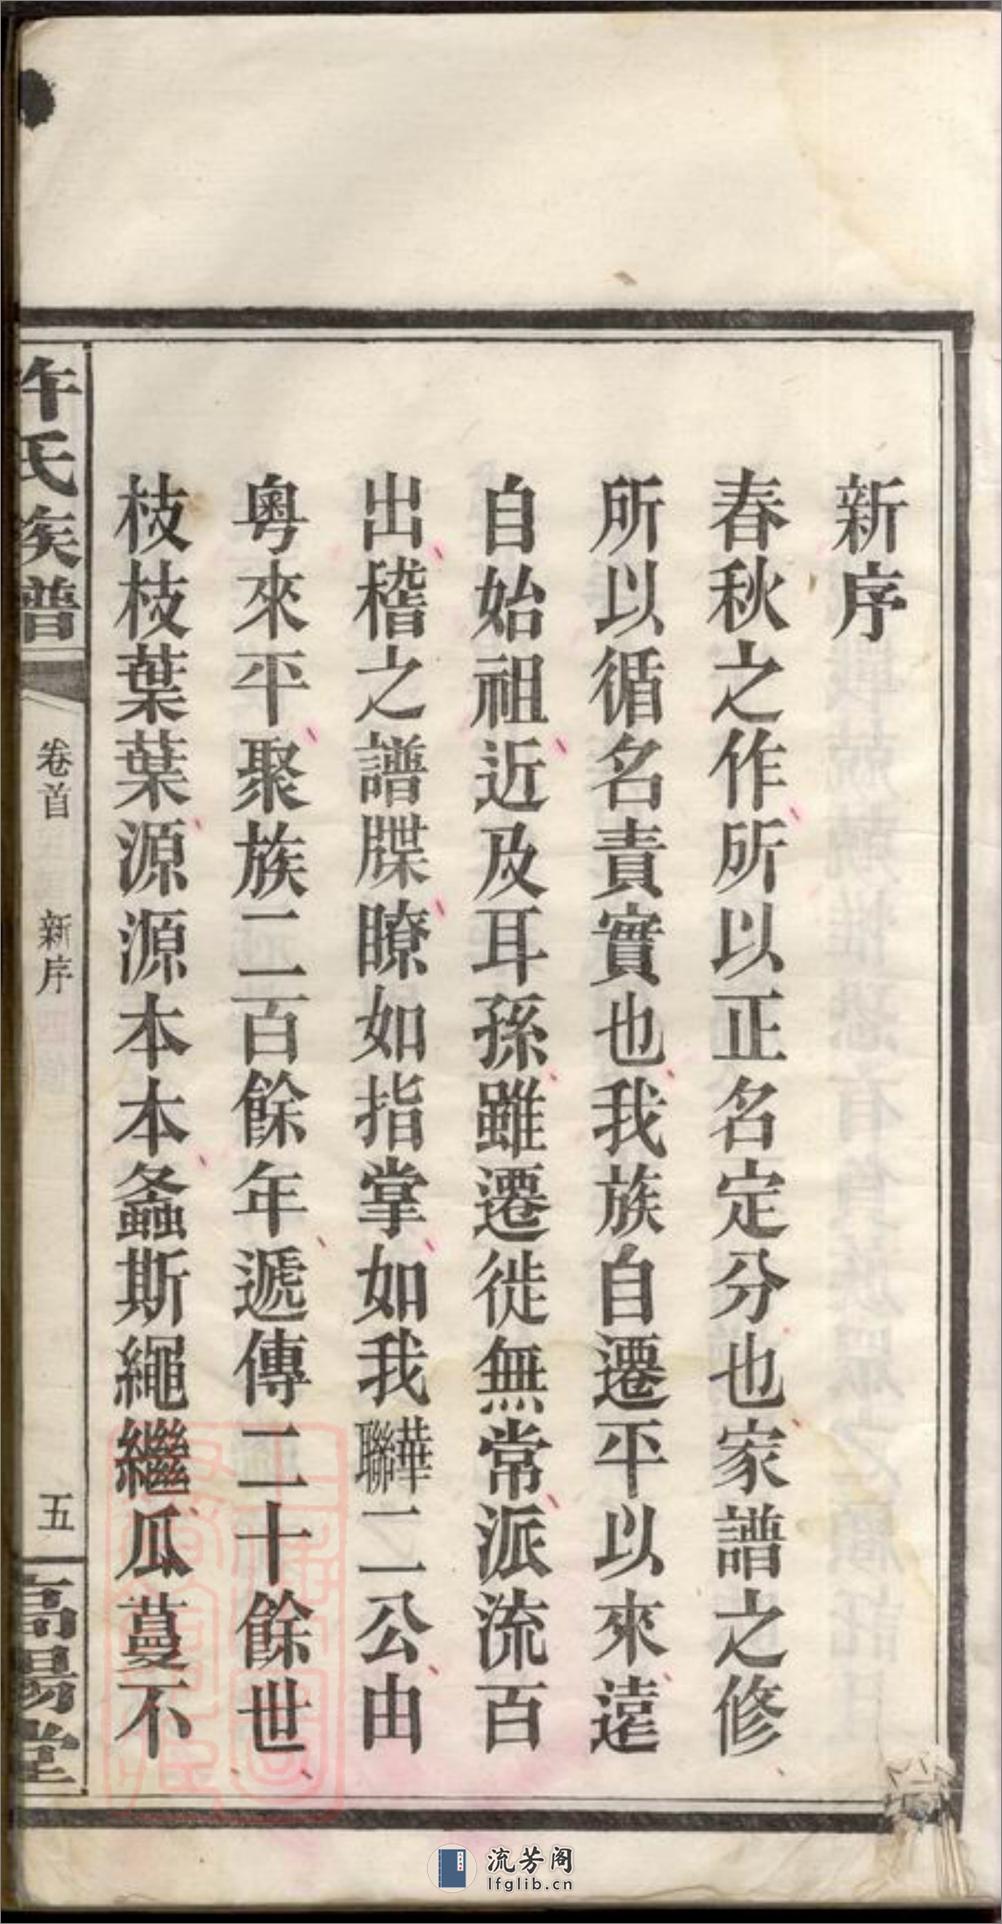 新序
春秋之作所以正名定分也家譜之修
所以循名責實也我族自遷平以來遠
自始祖近及耳孫雖遷徙無常派流百
出稽之譜牒瞭如指掌如我華聯二公由
粵來平聚族二百餘年遞傳二十餘世
枝枝葉葉源源本本螽斯繩繼瓜蔓不
許氏族譜
卷首 新序
五
高陽堂
流芳阁
lfglib.cn